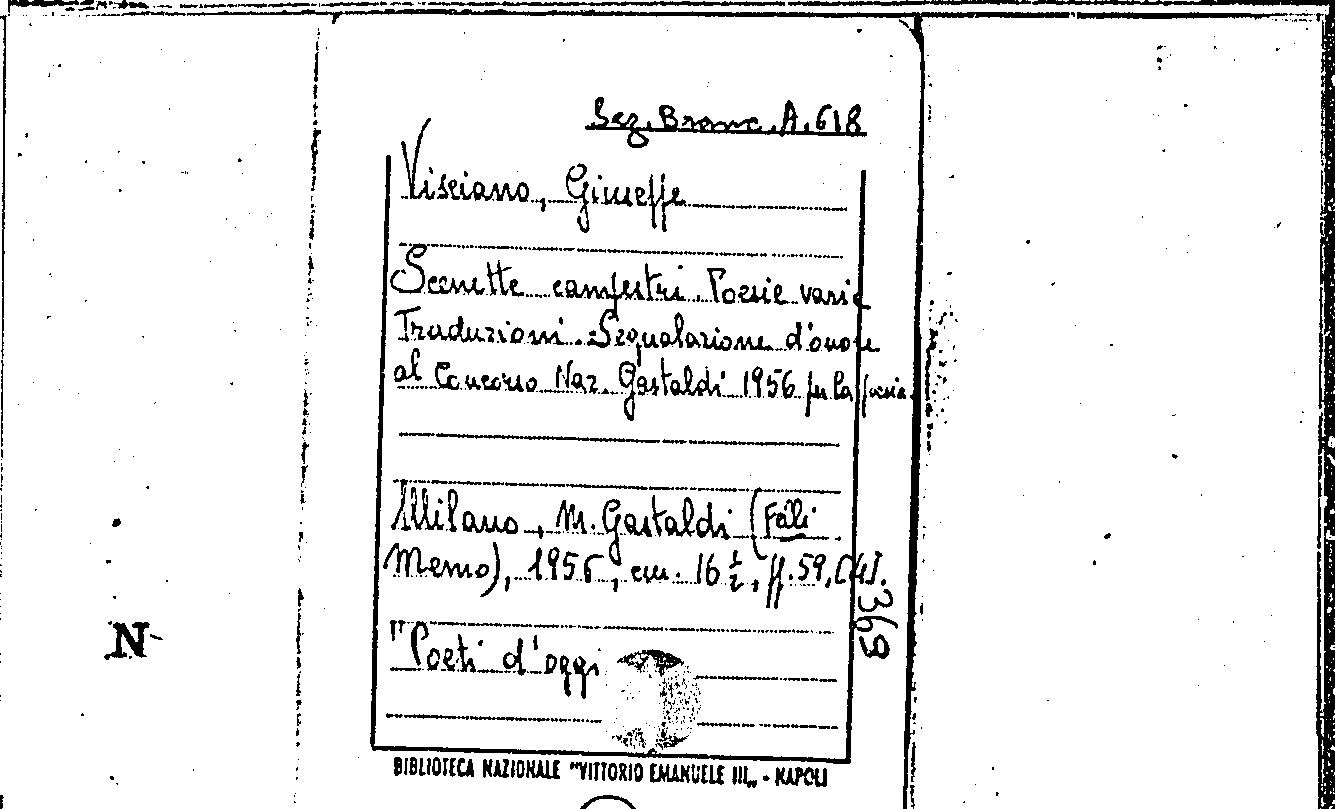 Sez. Branc. A. 618
Visciano, Giuseppe
Scenette campestri. Poesie varie
Traduzioni. Segnalazione d'onore
al Concorso Naz. Gastaldi 1956 per la poesia.
Milano, M. Gastaldi (
Memo), 1956, cm. 16 ½, pp. 59, [4].
369
"Poeti d'oggi
N
BIBLIOTECA NAZIONALE "VITTORIO EMANUELE III„ - NAPOLI